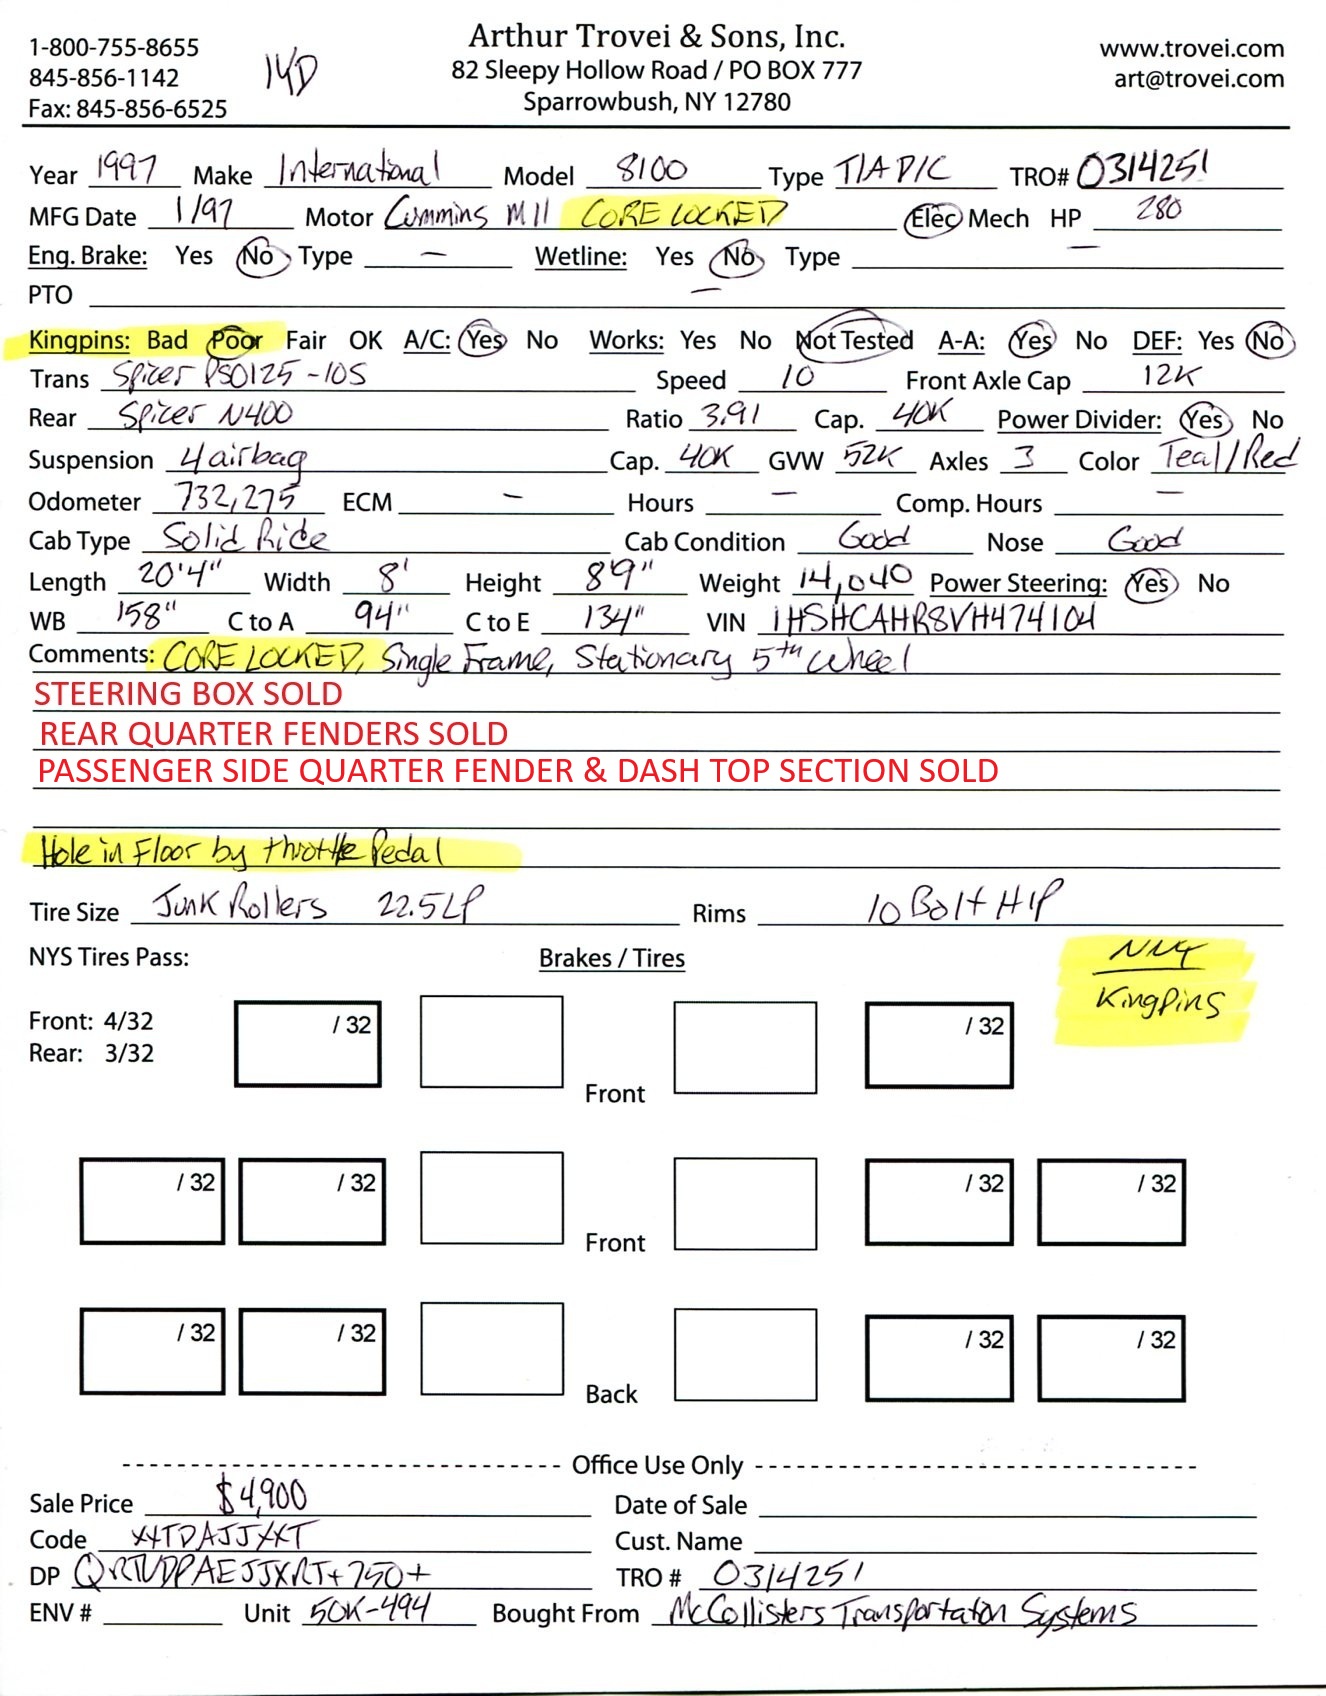 Arthur Trovei & Sons, Inc.
1-800-755-8655 82 Sleepy Hollow Road / PO BOX 777 www.trovei.com
845-856-1142 14D Sparrowbush, NY 12780 art@trovei.com
Fax: 845-856-6525
Year 1997 Make International Model 8100 Type T/A D/C TRO# 0314251
MFG Date 1/97 Motor Cummins M11 CORE LOCKED Elec Mech HP 280
Eng. Brake: Yes No Type — Wetline: Yes No Type —
PTO —
Kingpins: Bad Poor Fair OK A/C: Yes No Works: Yes No Not Tested A-A: Yes No DEF: Yes No
Trans Spicer PSO125-10S Speed 10 Front Axle Cap 12K
Rear Spicer N400 Ratio 3.91 Cap. 40K Power Divider: Yes No
Suspension 4 airbag Cap. 40K GVW 52K Axles 3 Color Teal/Red
Odometer 732,275 ECM – Hours – Comp. Hours –
Cab Type Solid Ride Cab Condition Good Nose Good
Length 20'4" Width 8' Height 8'9" Weight 14,040 Power Steering: Yes No
WB 158" C to A 94" C to E 134" VIN 1HSHCAHR8VH474104
Comments: CORE LOCKED, Single Frame, Stationary 5th wheel
STEERING BOX SOLD
REAR QUARTER FENDERS SOLD
PASSENGER SIDE QUARTER FENDER & DASH TOP SECTION SOLD
Hole in Floor by throttle Pedal
Tire Size Junk Rollers 22.5LP Rims 10 Bolt H/P
NYS Tires Pass: Brakes / Tires
Kingpins
Front: 4/32 / 32 / 32
Rear: 3/32
Front
/ 32 / 32 / 32 / 32
Front
/ 32 / 32 / 32 / 32
Back
Office Use Only
Sale Price $4,900 Date of Sale
Code XXTDAJJXXT Cust. Name
DP TRO # 0314251
ENV # Unit 50K-494 Bought From McCollisters Transportation Systems